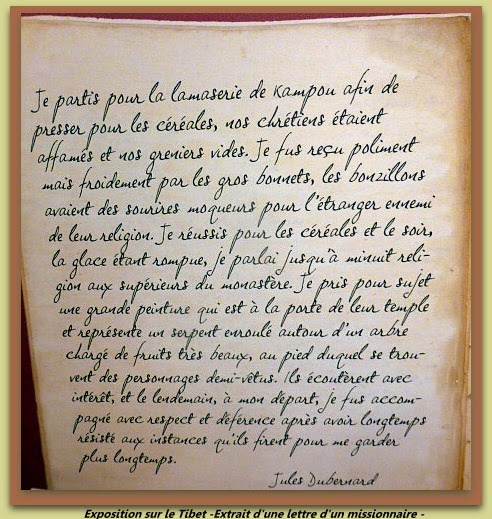 Je partis pour la lamaserie de Kampou afin de
presser pour les céréales, nos chrétiens étaient
affamés et nos greniers vides. Je fus reçu poliment
mais froidement par les gros bonnets, les bonzillons
avaient des sourires moqueurs pour l'étranger ennemi
de leur religion. Je réussis pour les céréales et le soir,
la glace étant rompue, je parlai jusqu'à minuit reli-
gion aux supérieurs du monastère. Je pris pour sujet
une grande peinture qui est à la porte de leur temple
et représente un serpent enroulé autour d'un arbre
chargé de fruits très beaux, au pied duquel se trou-
vent des personnages demi-vêtus. Ils écoutèrent avec
intérêt, et le lendemain, à mon départ, je fus accom-
pagné avec respect et déférence après avoir longtemps
résisté aux instances qu'ils firent pour me garder
plus longtemps.
Jules Dubernard
Exposition sur le Tibet -Extrait d'une lettre d'un missionnaire -